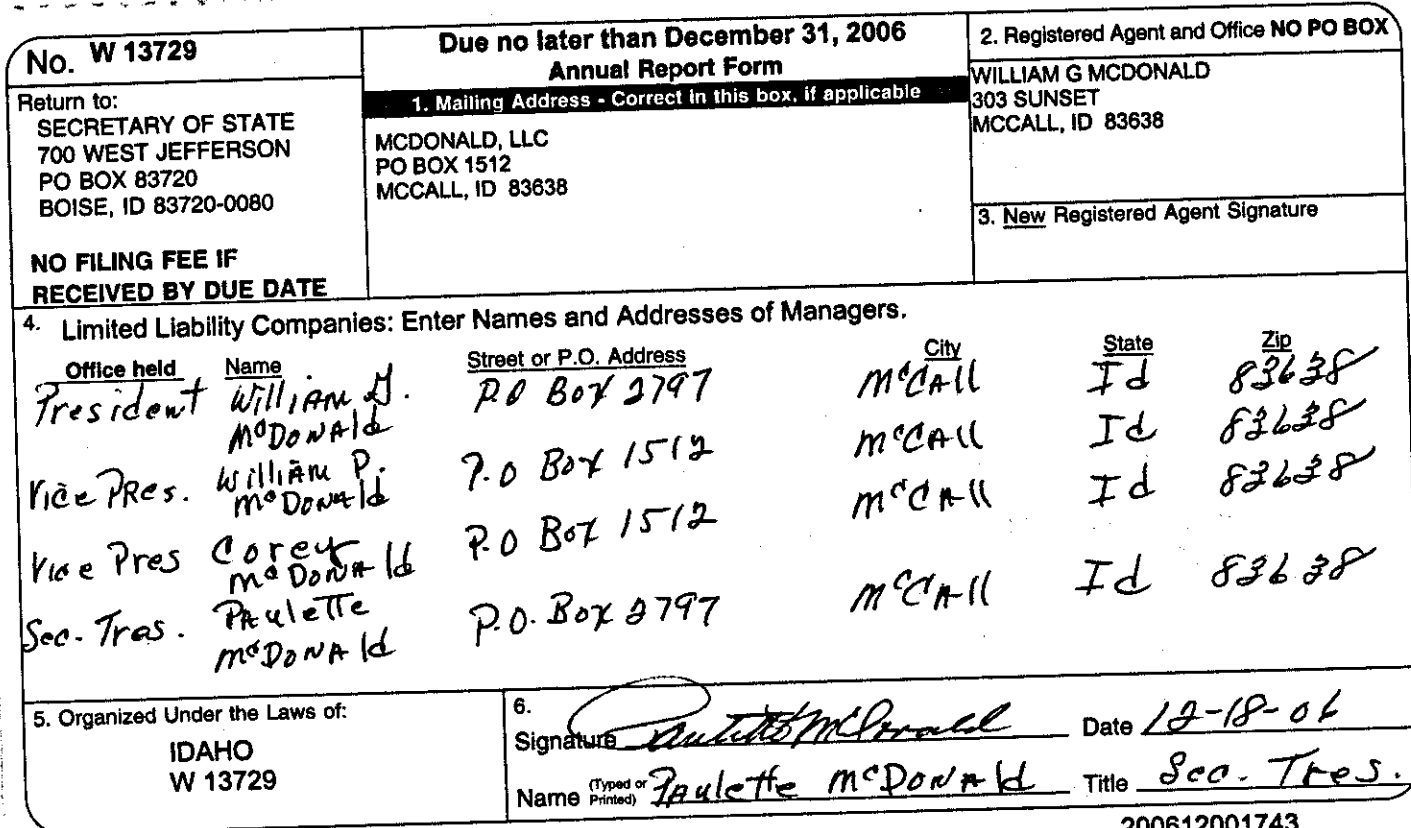 No. W 13729
Return to:
SECRETARY OF STATE
700 WEST JEFFERSON
PO BOX 83720
BOISE, ID 83720-0080
NO FILING FEE IF
RECEIVED BY DUE DATE
Due no later than December 31, 2006
Annual Report Form
1. Mailing Address - Correct in this box, if applicable
MCDONALD, LLC
PO BOX 1512
MCCALL, ID 83638
2. Registered Agent and Office NO PO BOX
WILLIAM G MCDONALD
303 SUNSET
MCCALL, ID 83638
3. New Registered Agent Signature
4. Limited Liability Companies: Enter Names and Addresses of Managers.
Office held Name Street or P.O. Address City State Zip
President William G. P.O Box 2797 McCall Id 83638
McDonald
Vice Pres. William P. P.O Box 1512 McCall Id 83638
McDonald
Vice Pres Corey P.O Box 1512 McCall Id 83638
McDonald
Sec. Tras. Paulette P.O. Box 2797 McCall Id 83638
McDonald
5. Organized Under the Laws of:
IDAHO
W 13729
6.
Signature Paulette McDonald Date 12-18-06
Name (Typed or Printed) Paulette McDonald Title Sec. Tres.
200612001743